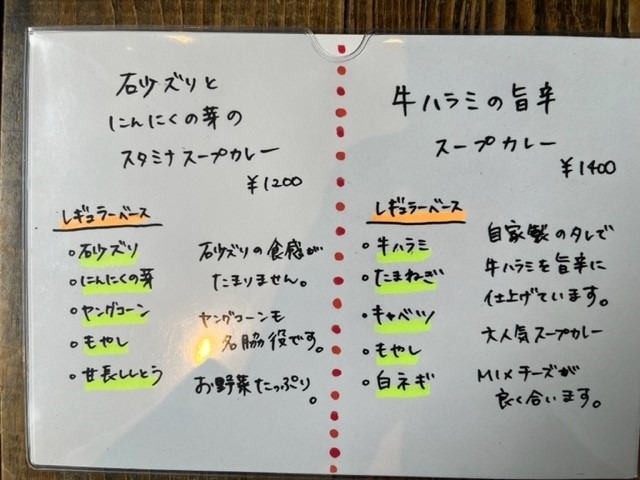 石少ズリと
にんにくの芽の
スタミナスープカレー
¥1200
レギュラーベース
。石少ズリ
。にんにくの芽
。ヤングコーン
。もやし
。甘長ししとう
石少ズリの食感が
たまりません。
ヤングコーンも
名脇役です。
お野菜たっぷり。
牛ハラミの旨辛
スープカレー
¥1400
レギュラーベース
。牛ハラミ
。たまねぎ
。キャベツ
。もやし
。白ネギ
自家製のタレで
牛ハラミを旨辛に
仕上げています。
大人気スープカレー
MIXチーズが
良く合います。